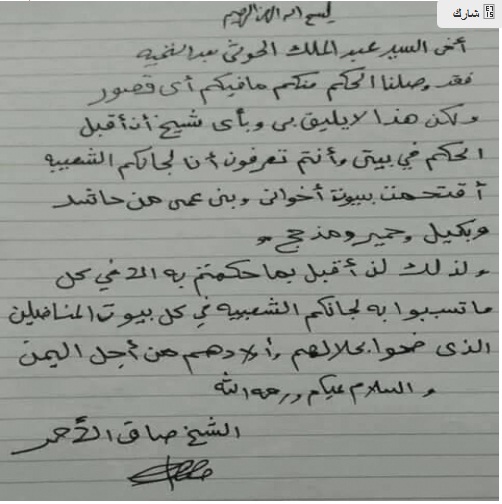 شارك
بسم الله الرحمن الرحيم
أخي السيد عبد الملك الحوثي بعد التحية
فقد وصلنا الحكم منكم مافيكم أي قصور
ولكن هذا لايليق بي وبأي شيخ أن أقبل
الحكم في بيتي وأنتم تعرفون أن لجانكم الشعبيه
أقتحمت بيوت أخواني وبني عمي من حاشد
وبكيل وحمير ومذحج
ولذلك لن أقبل بما حكمتم به الا في كل
ما تسببوا به لجانكم الشعبيه في كل بيوت المناضلين
الذي ضحوا بحلالهم وأولادهم من أجل اليمن
والسلام عليكم ورحمة الله
الشيخ صادق الأحمر